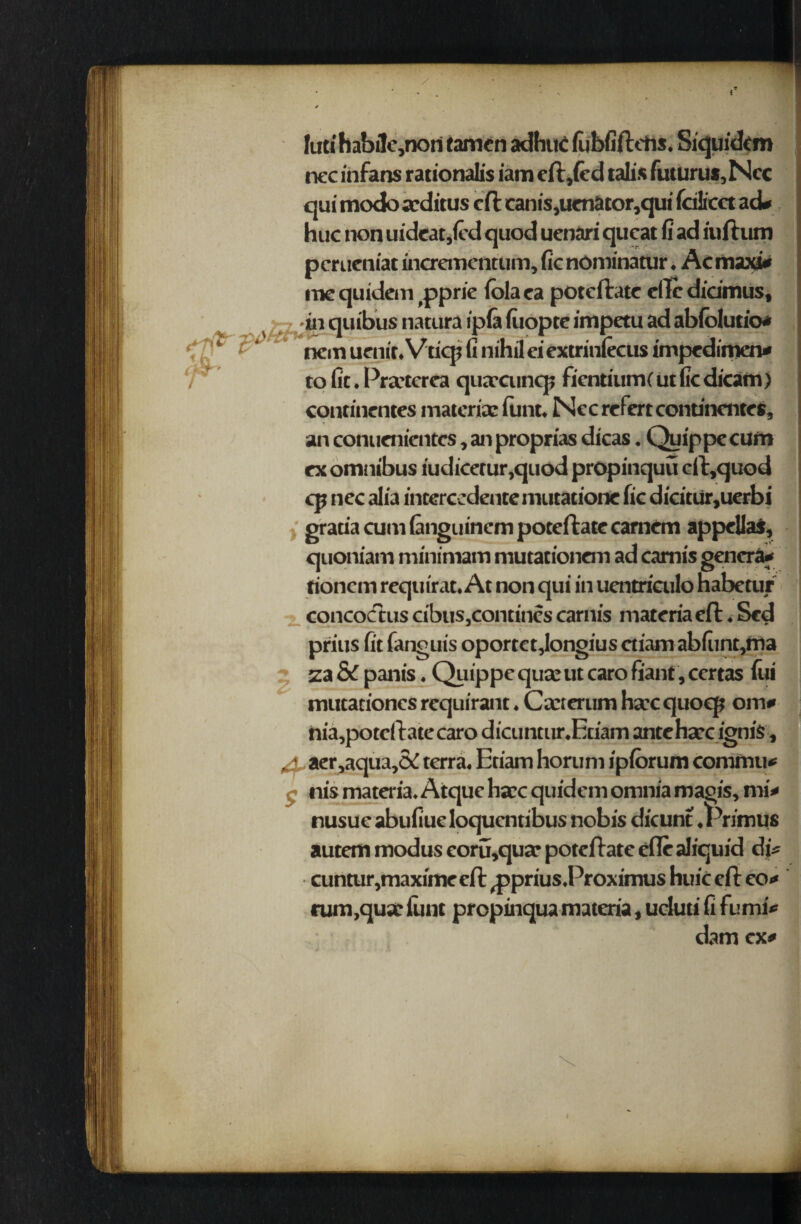 luti habile,non tamen adhuc ſubſiſtẽns. Siquidem
nec infans rationalis iam eſt,ſed talis futurus,Nec
qui modo æditus eſt canis,uenator,qui ſcilicet ad⸗
huc non uideat,ſed quod uenari queat ſi ad iuſtum
perueniat incrementum, ſic nominatur. Ac maxi⸗
me quidem ꝓprie ſola ea poteſtate eſſe dicimus,
in quibus natura ipſa ſuopte impetu ad abſolutio⸗
nem uenit. Vtiqꝫ ſi nihil ei extrinſecus impedimen⸗
to ſit. Præterea quæcunqꝫ fientium(ut ſic dicam)
continentes materiæ ſunt. Nec refert continentes,
an conuenientes, an proprias dicas. Quippe cum
ex omnibus iudicetur,quod propinquũ eſt,quod
qꝫ nec alia intercedente mutatione ſic dicitur,uerbi
gratia cum ſanguinem poteſtate carnem appellas,
quoniam minimam mutationem ad carnis genera⸗
tionem requirat. At non qui in uentriculo habetur
concoctus cibus,continẽs carnis materia eſt. Sed
prius ſit ſanguis oportet,longius etiam abſunt,ma
za & panis. Quippe quæ ut caro fiant, certas ſui
mutationes requirant. Cæterum hæc quoqꝫ om⸗
nia,poteſtate caro dicuntur.Etiam ante hæc ignis,
aer,aqua,& terra. Etiam horum ipſorum commu⸗
nis materia. Atque hæc quidem omnia magis, mi⸗
nusue abuſiue loquentibus nobis dicunt. Primus
autem modus eorũ,quæ poteſtate eſſe aliquid di⸗
cuntur,maxime eſt ꝓprius.Proximus huic eſt eo⸗
rum,quæ ſunt propinqua materia, ueluti ſi fumi⸗
dam ex⸗